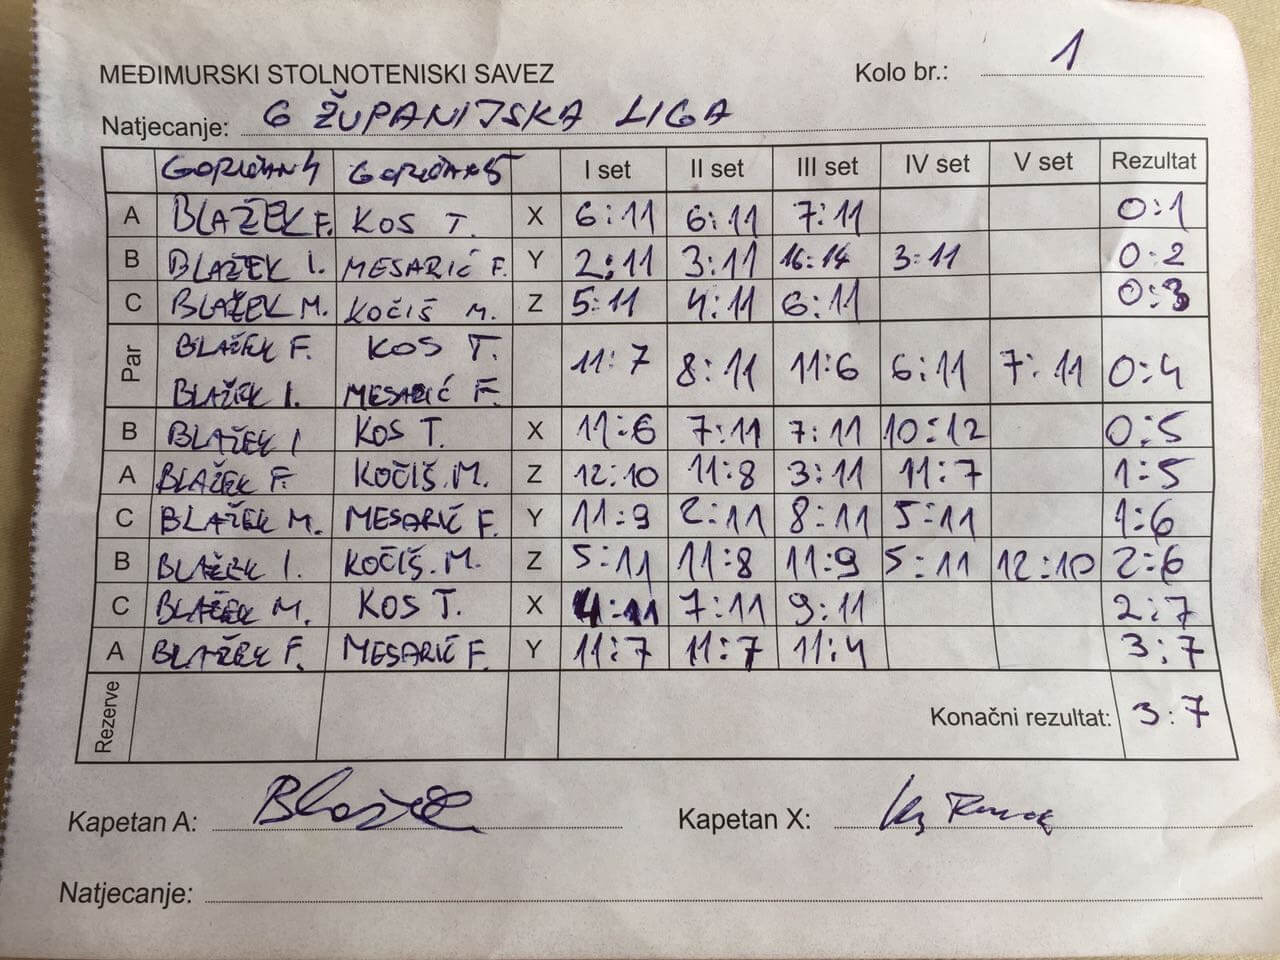 MEĐIMURSKI STOLNOTENISKI SAVEZ Kolo br.: 1
Natjecanje: 6 ŽUPANIJSKA LIGA
GORIČAN 4 GORIČAN 5 I set II set III set IV set V set Rezultat
A BLAŽEK F. KOS T. X 6:11 6:11 7:11 0:1
B BLAŽEK I. MESARIĆ F. Y 2:11 3:11 16:14 3:11 0:2
C BLAŽEK M. KOČIŠ M. Z 5:11 4:11 6:11 0:3
Par BLAŽEK F. KOS T. 11:7 8:11 11:6 6:11 7:11 0:4
BLAŽEK I. MESARIĆ F.
B BLAŽEK I KOS T. X 11:6 7:11 7:11 10:12 0:5
A BLAŽEK F. KOČIŠ.M. Z 12:10 11:8 3:11 11:7 1:5
C BLAŽEK M. MESARIĆ F. Y 11:9 2:11 8:11 5:11 1:6
B BLAŽEK I. KOČIŠ.M. Z 5:11 11:8 11:9 5:11 12:10 2:6
C BLAŽEK M. KOS T. X 4:11 7:11 9:11 2:7
A BLAŽEK F. MESARIĆ F. Y 11:7 11:7 11:4 3:7
Rezerve Konačni rezultat: 3:7
Kapetan A: Blažek Kapetan X:
Natjecanje: